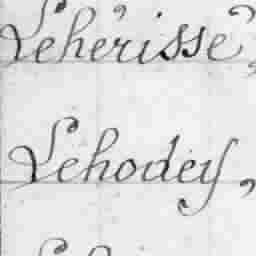 Lehérissé,
Lehodey,